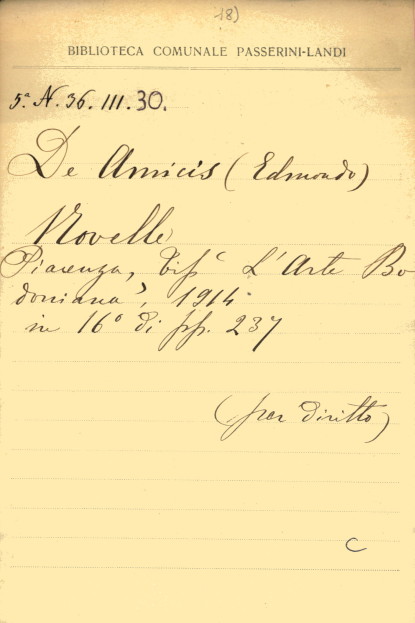 18)
BIBLIOTECA COMUNALE PASSERINI-LANDI
5ª N. 36. III. 30.
De Amicis (Edmondo)
Novelle
Piacenza, Tipᶜ L'Arte Bo
doniana, 1914
in 16° di pp. 237
(per diritto)
C